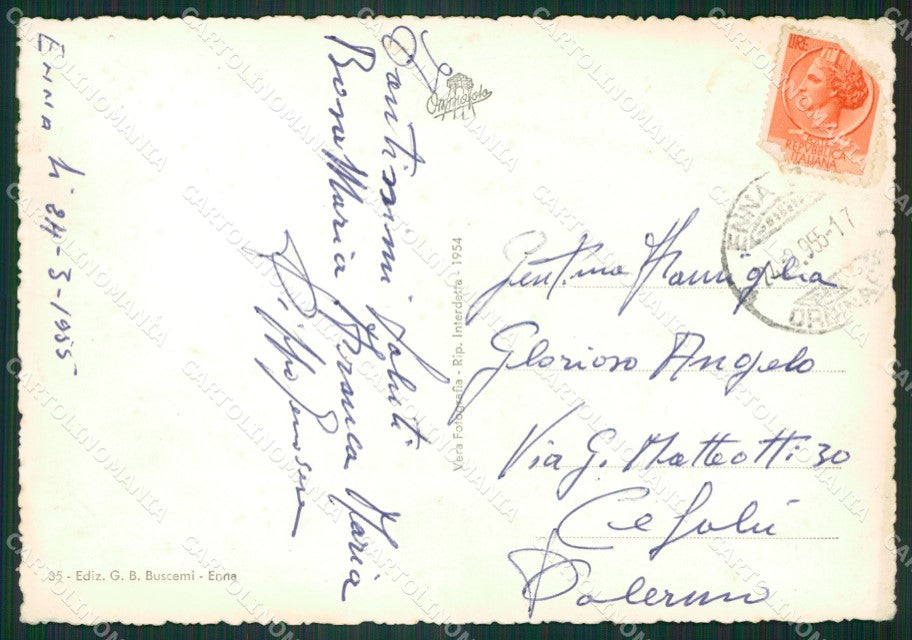 Enna li 24-3-1955
Tantissimi Saluti
Rosa Maria Franca Maria
Pippo
Omniafoto
Vera Fotografia - Rip. Interdetta - 1954
LIRE
POSTE
REPUBBLICA
ITALIANA
ENNA
.955-17
ORDINAR
Gent.ma Famiglia
Glorioso Angelo
Via G. Matteotti 30
Cefalù
Palermo
35 - Ediz. G. B. Buscemi - Enna
CARTOLINOMANIA